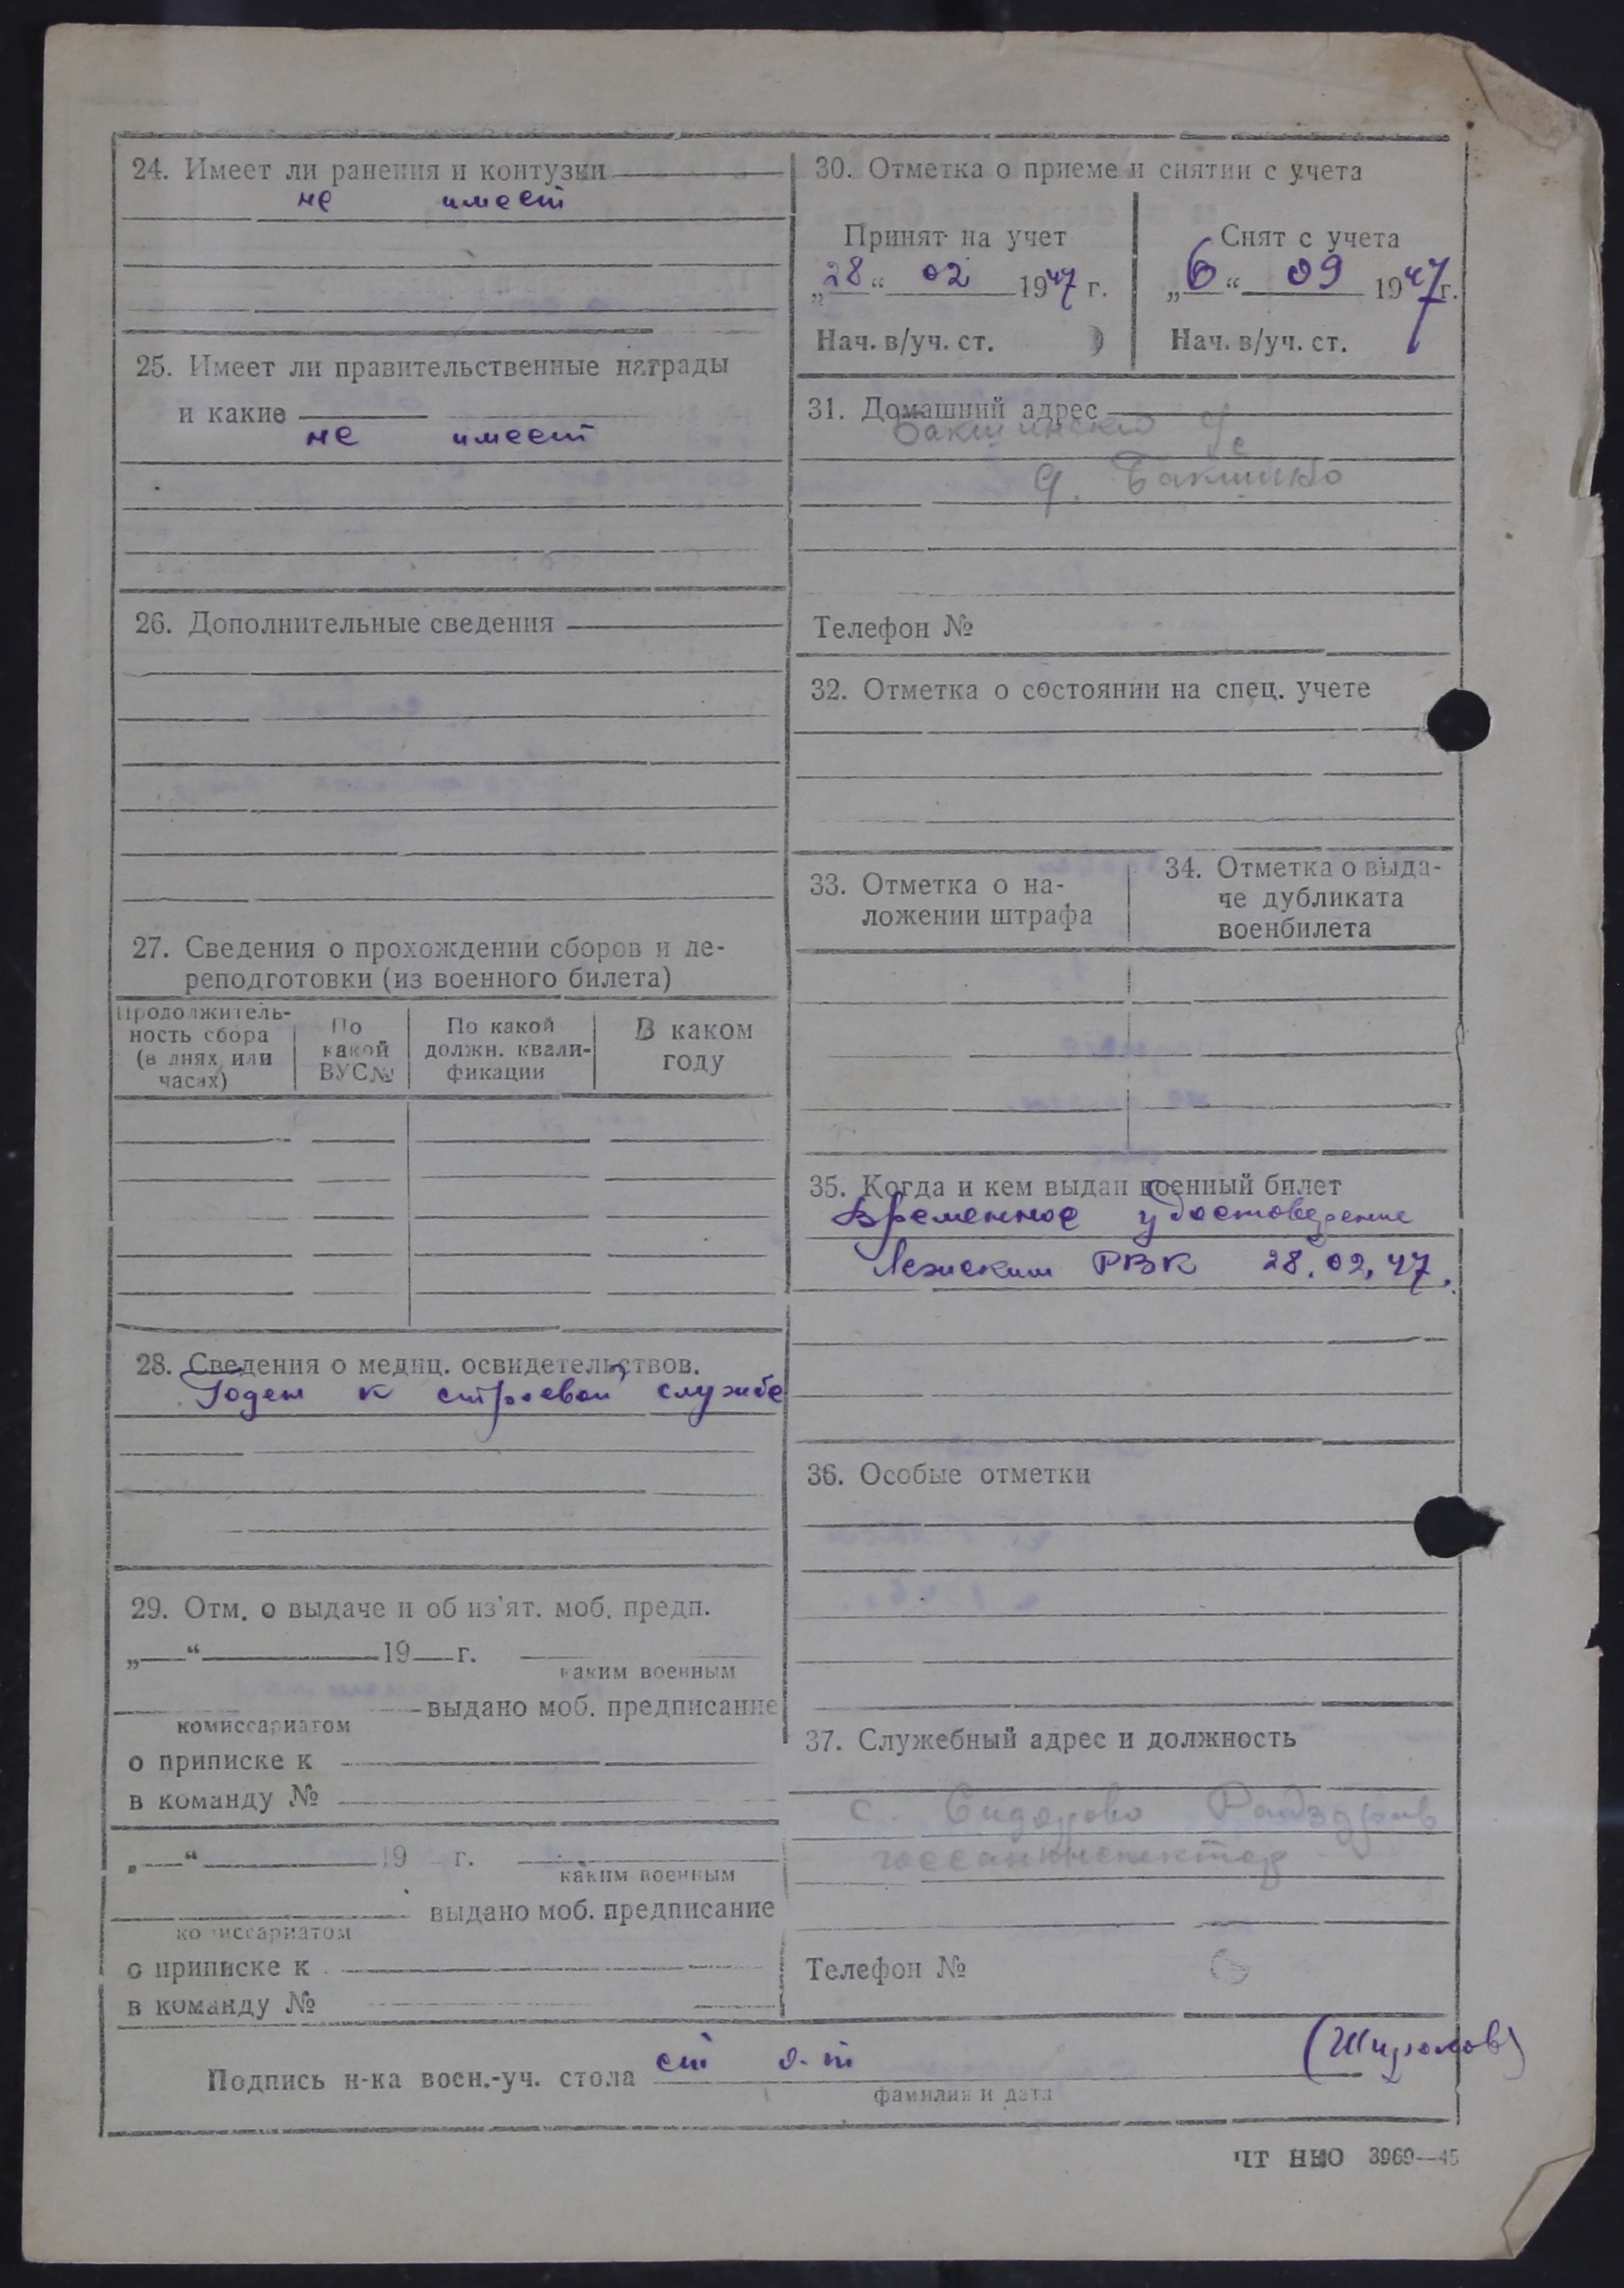 24. Имеет ли ранения и контузии
не имеет
25. Имеет ли правительственные награды
и какие
не имеет
26. Дополнительные сведения
27. Сведения о прохождении сборов и пе-
реподготовки (из военного билета)
Продолжитель-
ность сбора
(в днях или
часах)
По
какой
ВУС№
По какой
должн. квали-
фикации
В каком
году
28. Сведения о медиц. освидетельствов.
Годен к строевой службе
29. Отм. о выдаче и об из'ят. моб. предп.
„ “ 19 г.
каким военным
выдано моб. предписание
комиссариатом
о приписке к
в команду №
„ “ 19 г.
каким военным
выдано моб. предписание
комиссариатом
о приписке к
в команду №
30. Отметка о приеме и снятии с учета
Принят на учет
„28“ 02 1947 г.
Нач. в/уч. ст.
Снят с учета
„6“ 09 1947 г.
Нач. в/уч. ст.
31. Домашний адрес
д.
Телефон №
32. Отметка о состоянии на спец. учете
33. Отметка о на-
ложении штрафа
34. Отметка о выда-
че дубликата
военбилета
35. Когда и кем выдан военный билет
Временное удостоверение
Лежским РВК 28.02.47.
36. Особые отметки
37. Служебный адрес и должность
с. Сидорово Райздрав
госсанинспектор
Телефон №
Подпись н-ка воен.-уч. стола ст л-т
фамилия и дата
ЧТ НКО 3969—45